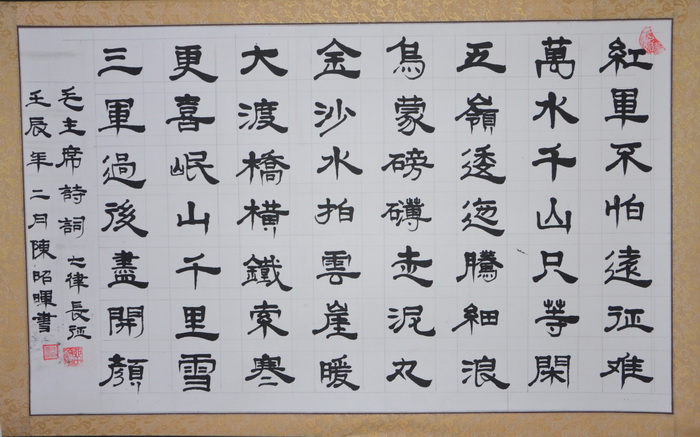 紅軍不怕遠征难
萬水千山只等閑
五嶺逶迤騰細浪
烏蒙磅礴走泥丸
金沙水拍雲崖暖
大渡橋橫鐵索寒
更喜岷山千里雪
三軍過後盡開顏
毛主席詩詞 七律長征
壬辰年二月陳昭暉書